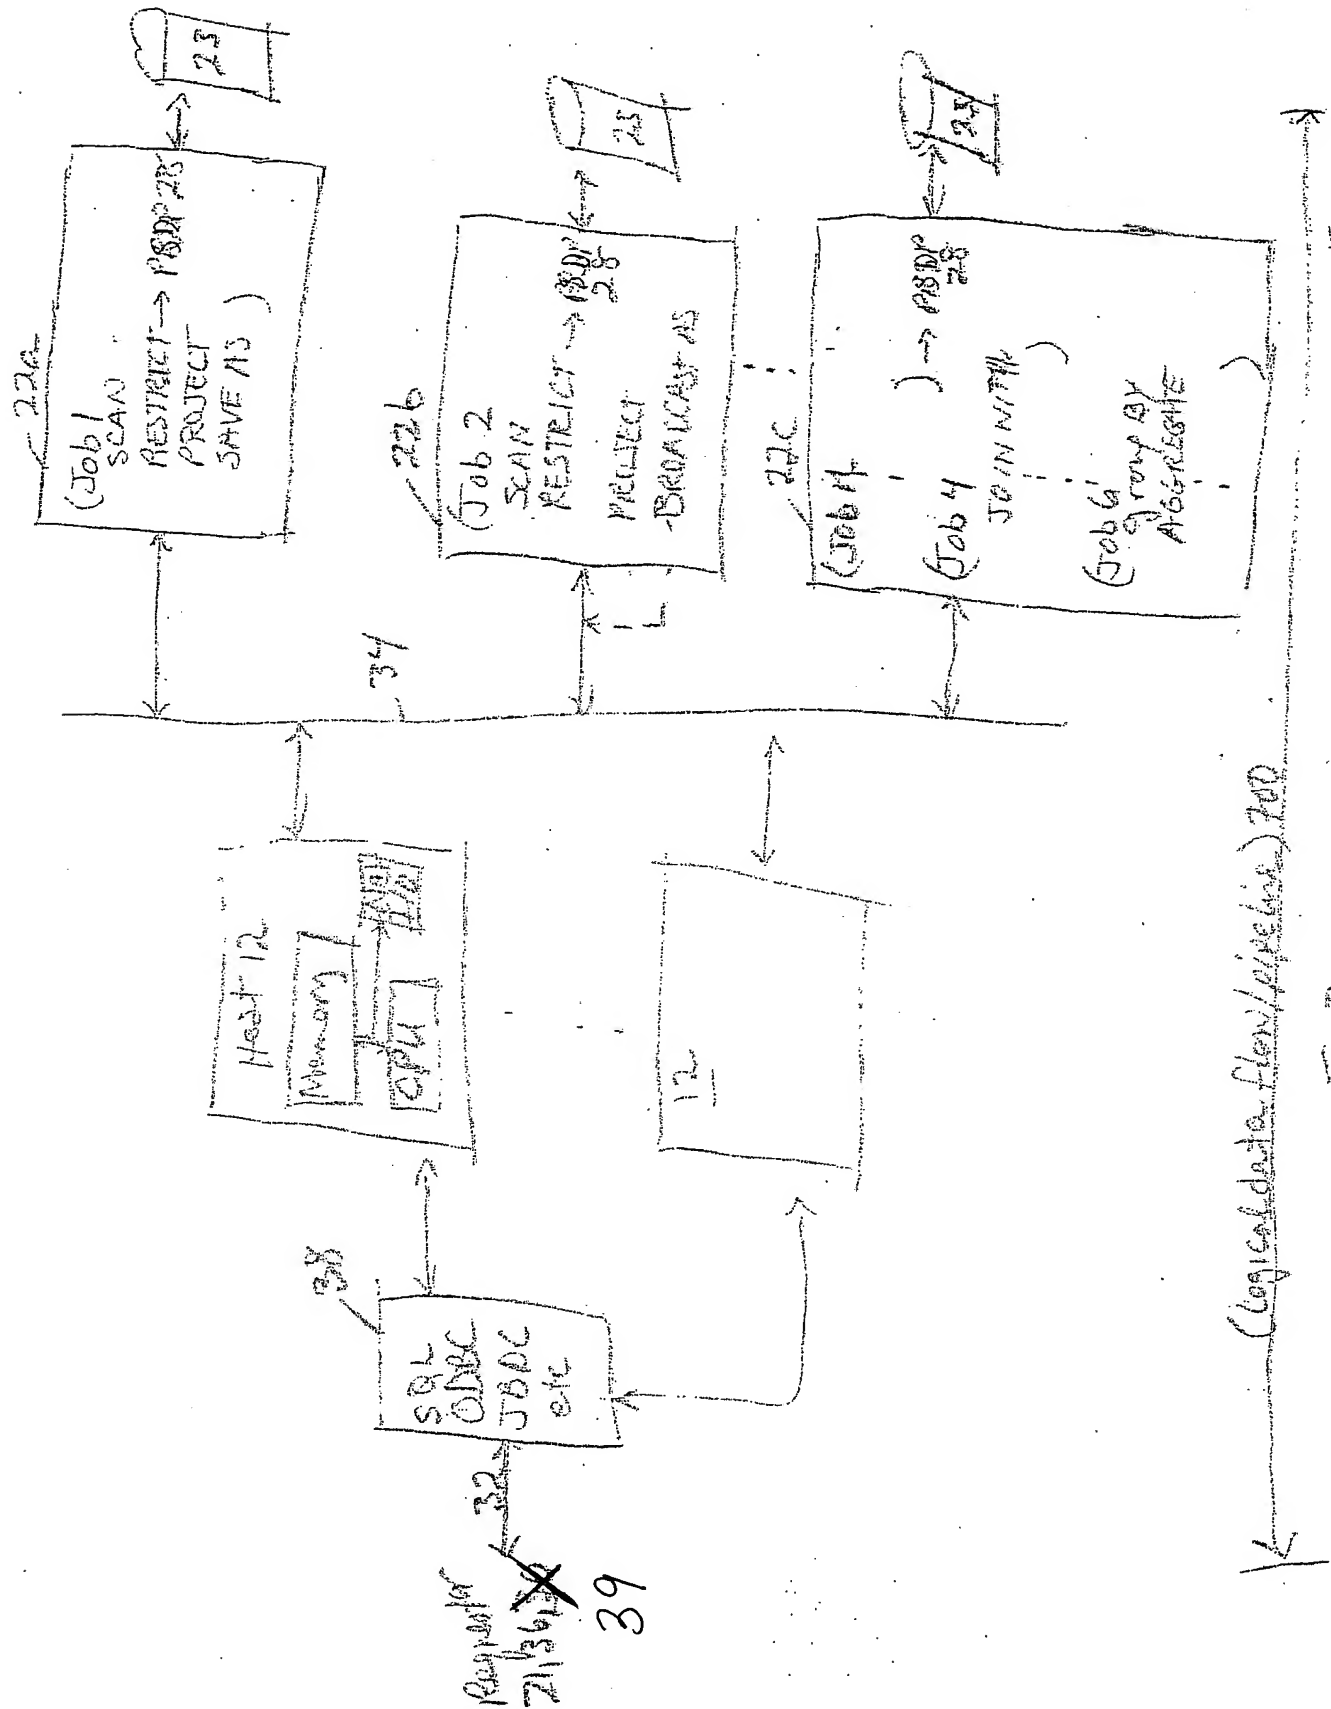 Requestor
21, 36,
39
32
38
SQL
ODBC
JBDC
etc
Host 12
Memory
CPU
12
34
22a
(Job 1
SCAN
RESTRICT → PSDP 28
PROJECT
SAVE AS )
23
22b
(Job 2
SCAN
RESTRICT → PSDP
28
PROJECT
BROADCAST AS
23
L
22c
(Job
) → PSDP
28
(Job 4
JOIN WITH )
(Job 6
group BY
AGGREGATE )
23
(logical data flow/pipeline) 700